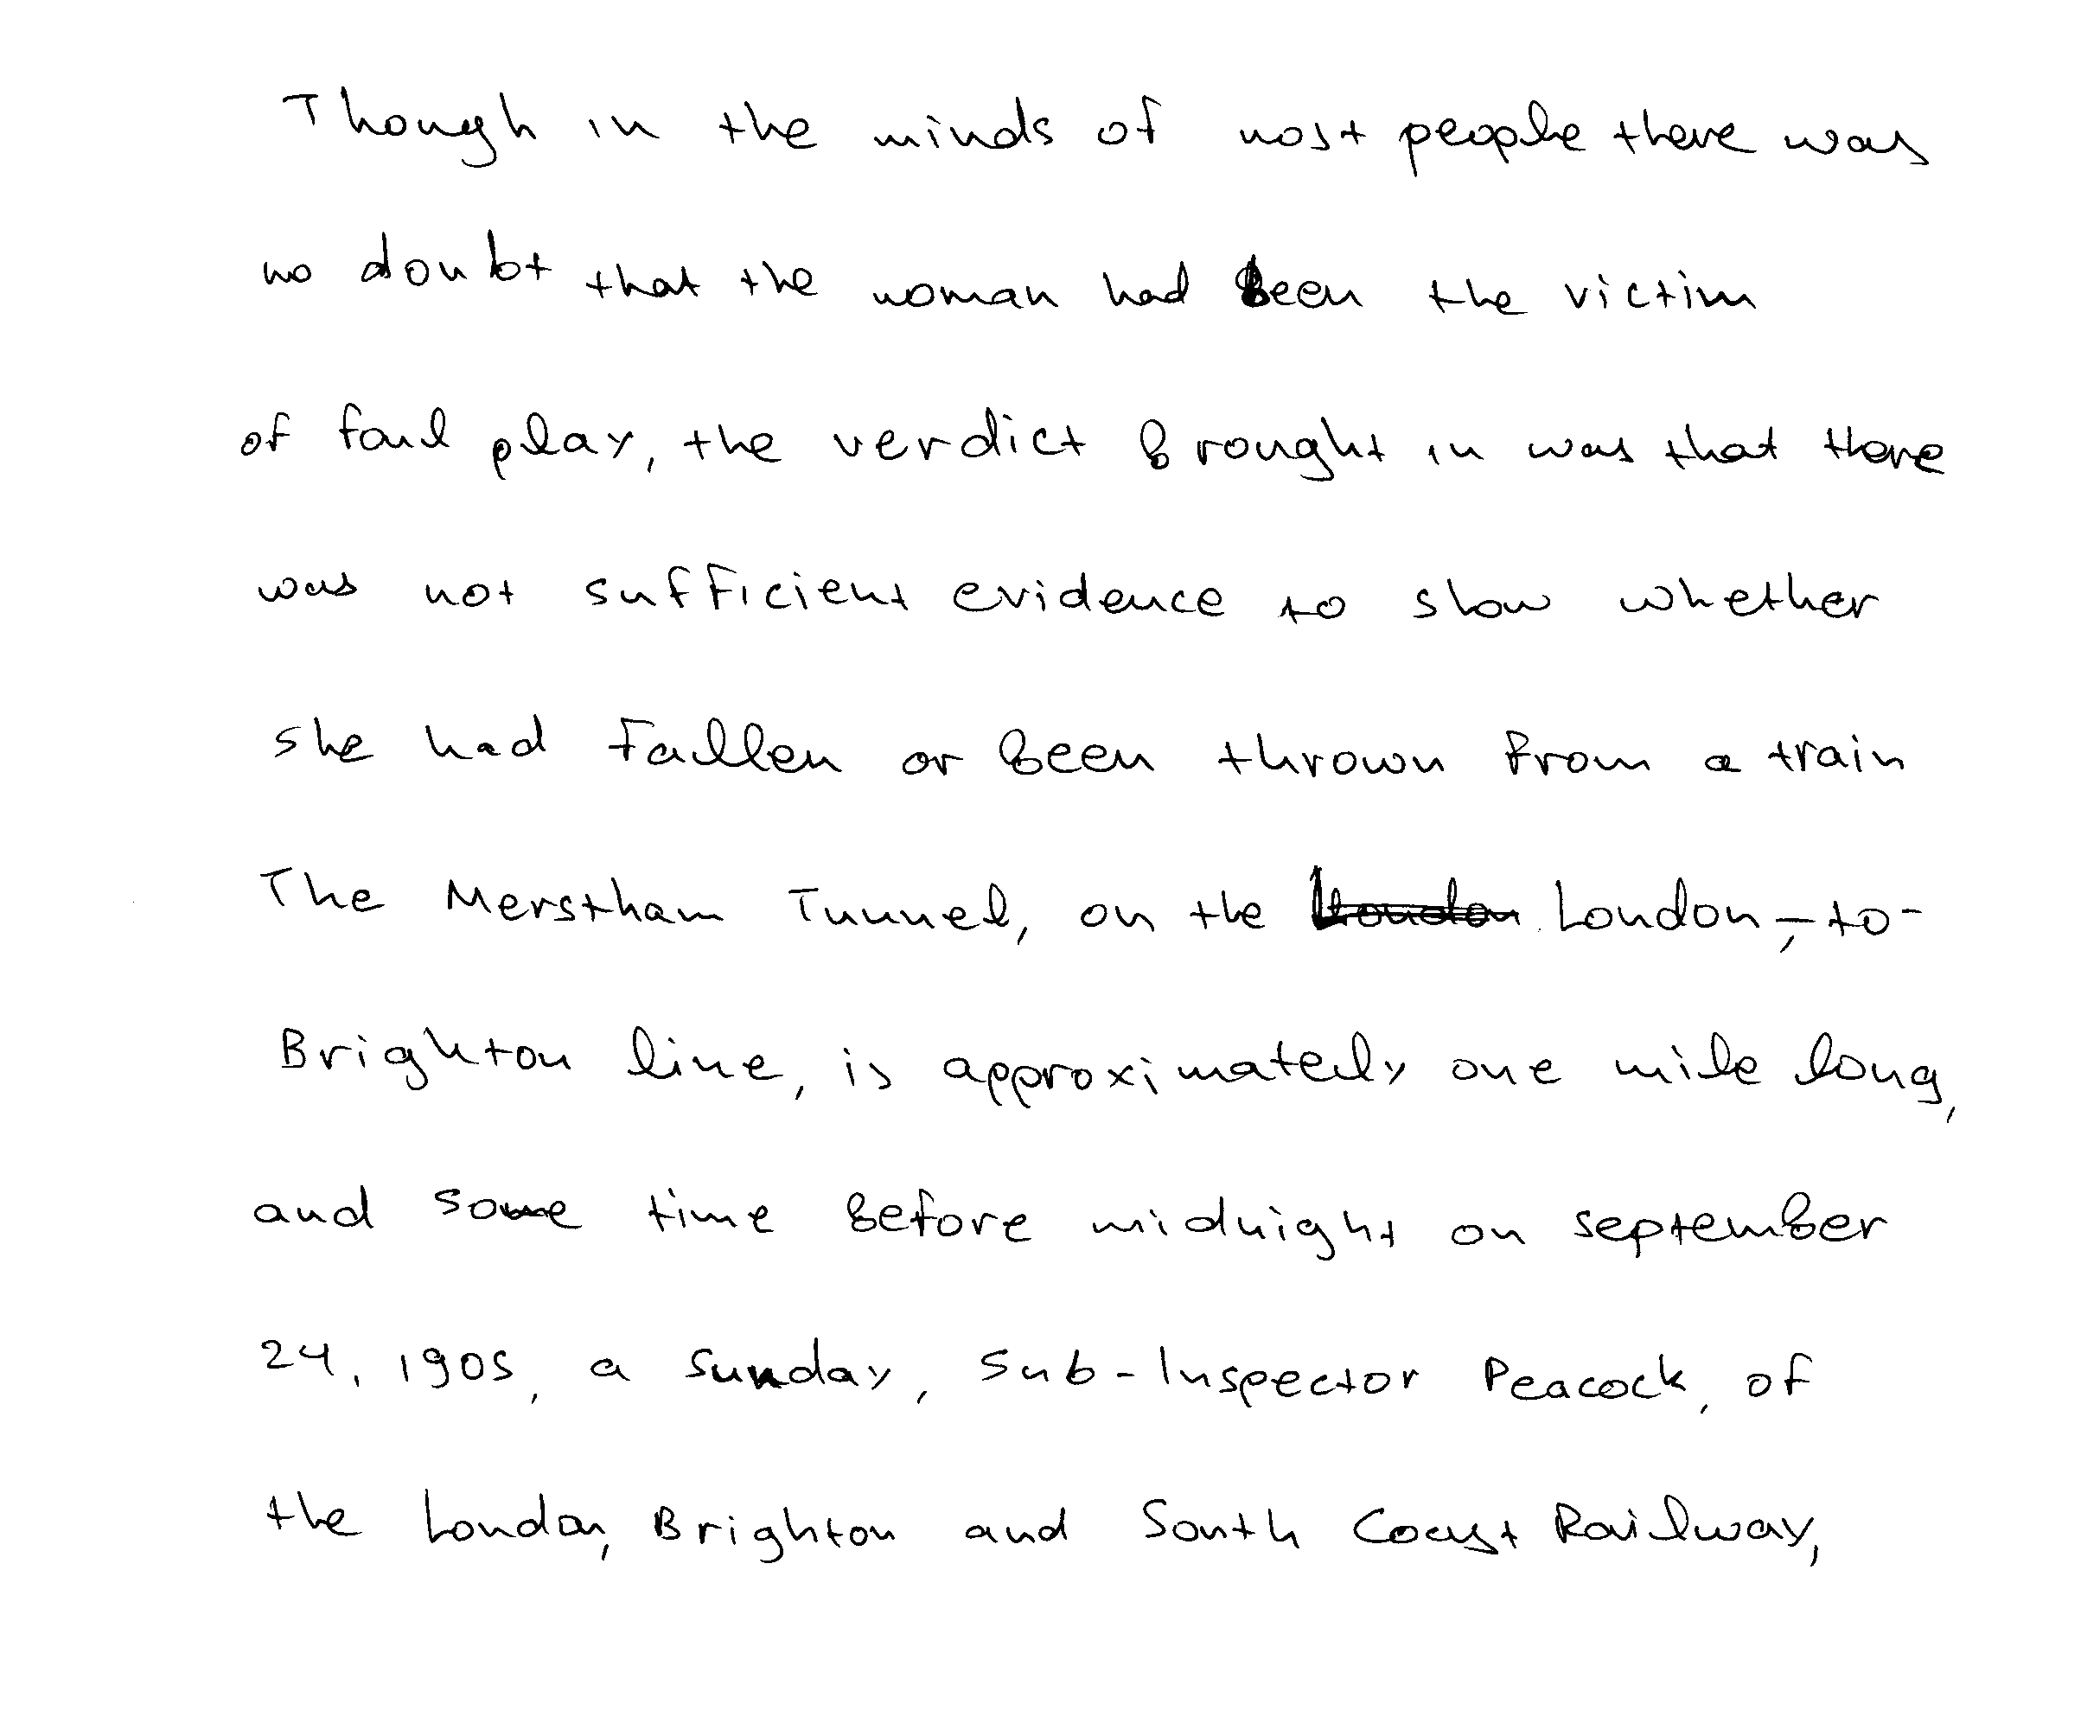 Though in the minds of most people there was
no doubt that the woman had been the victim
of foul play, the verdict brought in was that there
was not sufficient evidence to show whether
she had fallen or been thrown from a train
The Merstham Tunnel, on the London London-,to-
Brighton line, is approximately one mile long,
and some time before midnight on september
24, 1905, a sunday, Sub-Inspector Peacock, of
the London, Brighton and South Coast Railway,